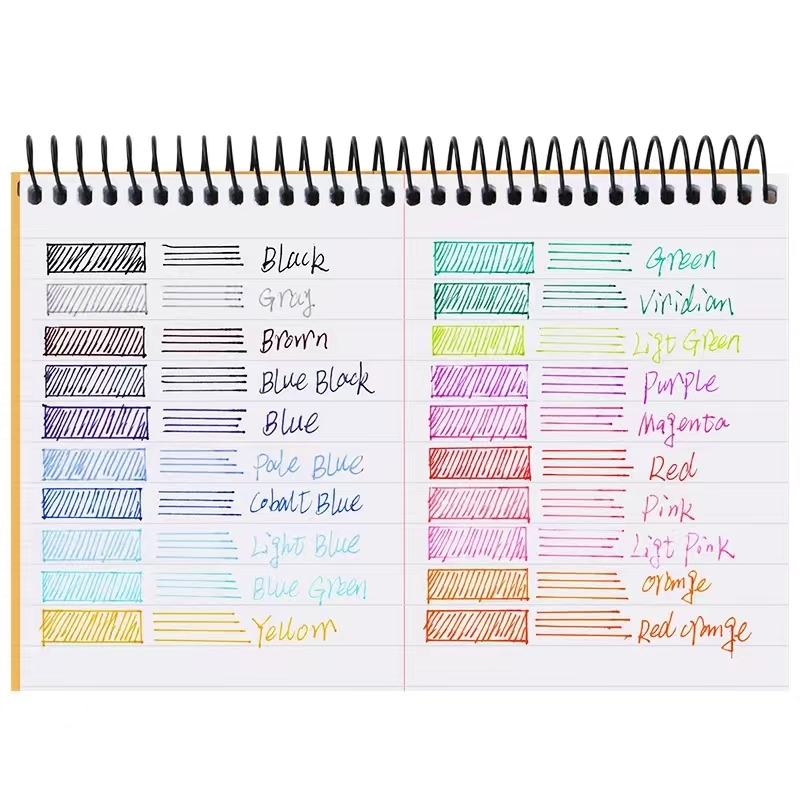 Black
Gray
Brown
Blue Black
Blue
Pale Blue
Cobalt Blue
Light Blue
Blue Green
Yellow
Green
Viridian
Ligt Green
Purple
Magenta
Red
Pink
Ligt Pink
Orange
Red Orange